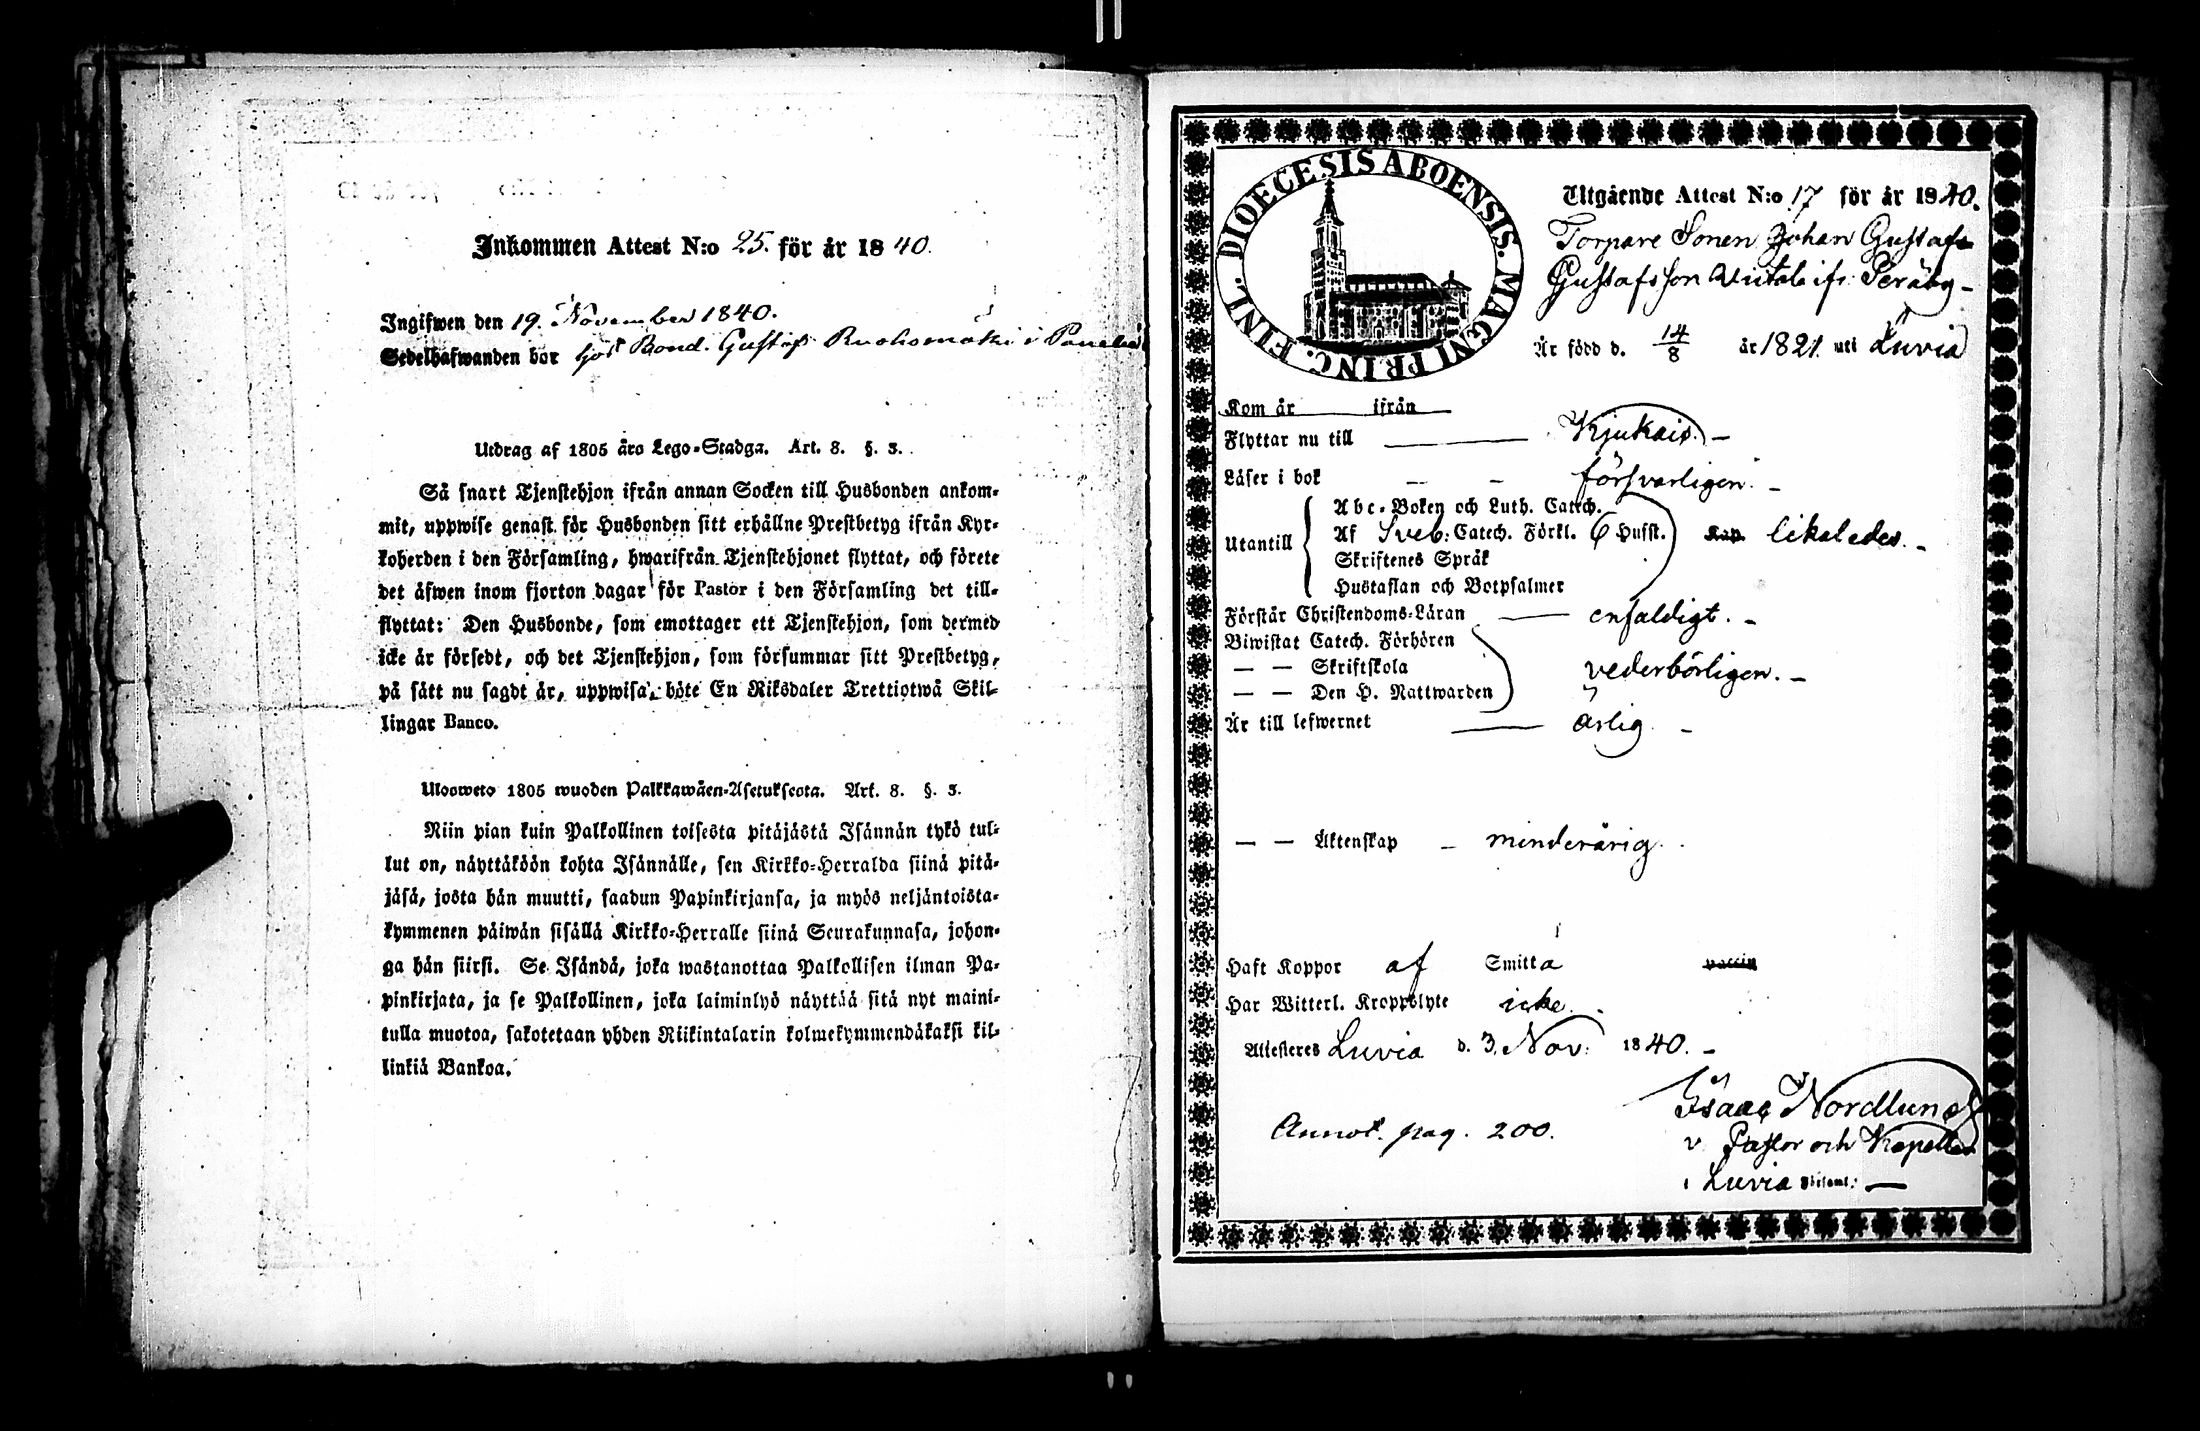 Inkommen Attest N:o 25. för år 1840.
Ingifwen den 19. November 1840.
Sedelhafwanden bor hos Bond. Gustaf Ruohomäki i Panelia
Utdrag af 1805 års Lego-Stadga. Art. 8. §. 3.
Så snart Tjenstehjon ifrån annan Socken till Husbonden ankom-
mit, uppwise genast för Husbonden sitt erhållne Prestbetyg ifrån Kyr-
koherden i den Församling, hwarifrån Tjenstehjonet flyttat, och förete
det äfwen inom fjorton dagar för Pastor i den Församling det till-
flyttat: Den Husbonde, som emottager ett Tjenstehjon, som dermed
icke är försedt, och det Tjenstehjon, som försummar sitt Prestbetyg,
på sätt nu sagdt är, uppwisa, böte En Riksdaler Trettiotwå Skil-
lingar Banco.
Ulosweto 1805 wuoden Palkkawäen-Asetuksesta. Art. 8. §. 3.
Niin pian kuin Palkollinen toisesta pitäjästä Isännän tykö tul-
lut on, näyttäköön kohta Isännälle, sen Kirkko-Herralda siinä pitä-
jäsä, josta hän muutti, saadun Papinkirjansa, ja myös neljäntoista-
kymmenen päiwän sisällä Kirkko-Herralle siinä Seurakunnasa, johon-
ga hän siirsi. Se Isändä, joka wastanottaa Palkollisen ilman Pa-
pinkirjata, ja se Palkollinen, joka laiminlyö näyttää sitä nyt maini-
tulla muotoa, sakotetaan yhden Riikintalarin kolmekymmendäkaksi kil-
linkiä Bankoa.
DIOECESIS ABOENSIS. MAGNI PRINC. FINL.
Utgående Attest N:o 17 för år 1840.
Torpare Sonen Johan Gustaf
Gustafsson ifr. Peräby
Är född d. 14/8 år 1821. uti Luvia
Kom år ifrån
Flyttar nu till Kjukais.
Läser i bok försvarligen.
Abc-Boken och Luth. Catech.
Utantill Af Sveb: Catech. Förkl. 6 Hufst. Kap. likaledes.
Skriftenes Språk
Hustaflan och Botpsalmer
Förstår Christendoms-Läran enfaldigt.
Biwistat Catech. Förhören
— — Skriftskola vederbörligen.
— — Den H. Nattwarden
Är till lefwernet ärlig.
— — Äktenskap minderårig.
Haft Koppor af Smitta vaccin
Har Witterl. Kroppslyte icke.
Attesteres Luvia d. 3. Nov: 1840.
Isaac Nordlund
Annot. pag. 200.
v. Pastor och Kapellan
i Luvia